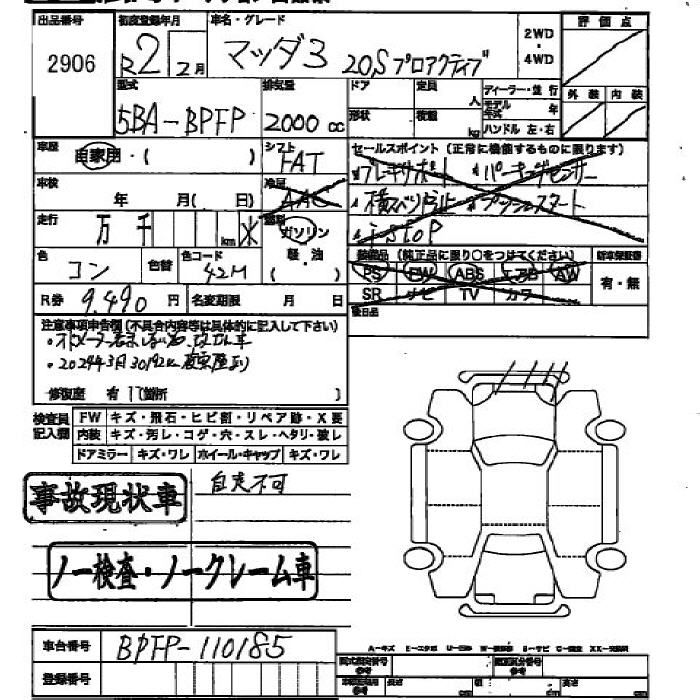 出品番号 初度登録年月 車名・グレード 2WD ・ 4WD 評価点
2906 R2 2月 マツダ3 20Sプロアクティブ
型式 排気量 ドア 定員 人 ディーラー・並行 外装 内装
5BA-BPFP 2000cc 形状 積載 kg モデル年式 年
ハンドル 左・右
車歴 自家用・( ) シフト FAT セールスポイント(正常に機能するものに限ります)
ブレーキサポート パーキングセンサー
車検 年 月( 日) 冷房 AAC
プッシュスタート
走行 万 千 km 燃料 ガソリン i-stop
軽・油
色 コン 色替 色コード 42M 装備品(純正品に限り○をつけてください) 新車保証書
PS PW ABS エアB AW 有・無
R券 9.490円 名変期限 月 日 SR ナビ TV カワ
後日品
注意事項申告欄(不具合内容等は具体的に記入して下さい)
修復歴 有 箇所 )
検査員記入欄 FW キズ・飛石・ヒビ割・リペア跡・X要
内装 キズ・汚レ・コゲ・穴・スレ・ヘタリ・破レ
ドアミラー キズ・ワレ ホイール・キャップ キズ・ワレ
事故現状車 自走不可
ノー検査・ノークレーム車
車台番号 BPFP-110185
登録番号